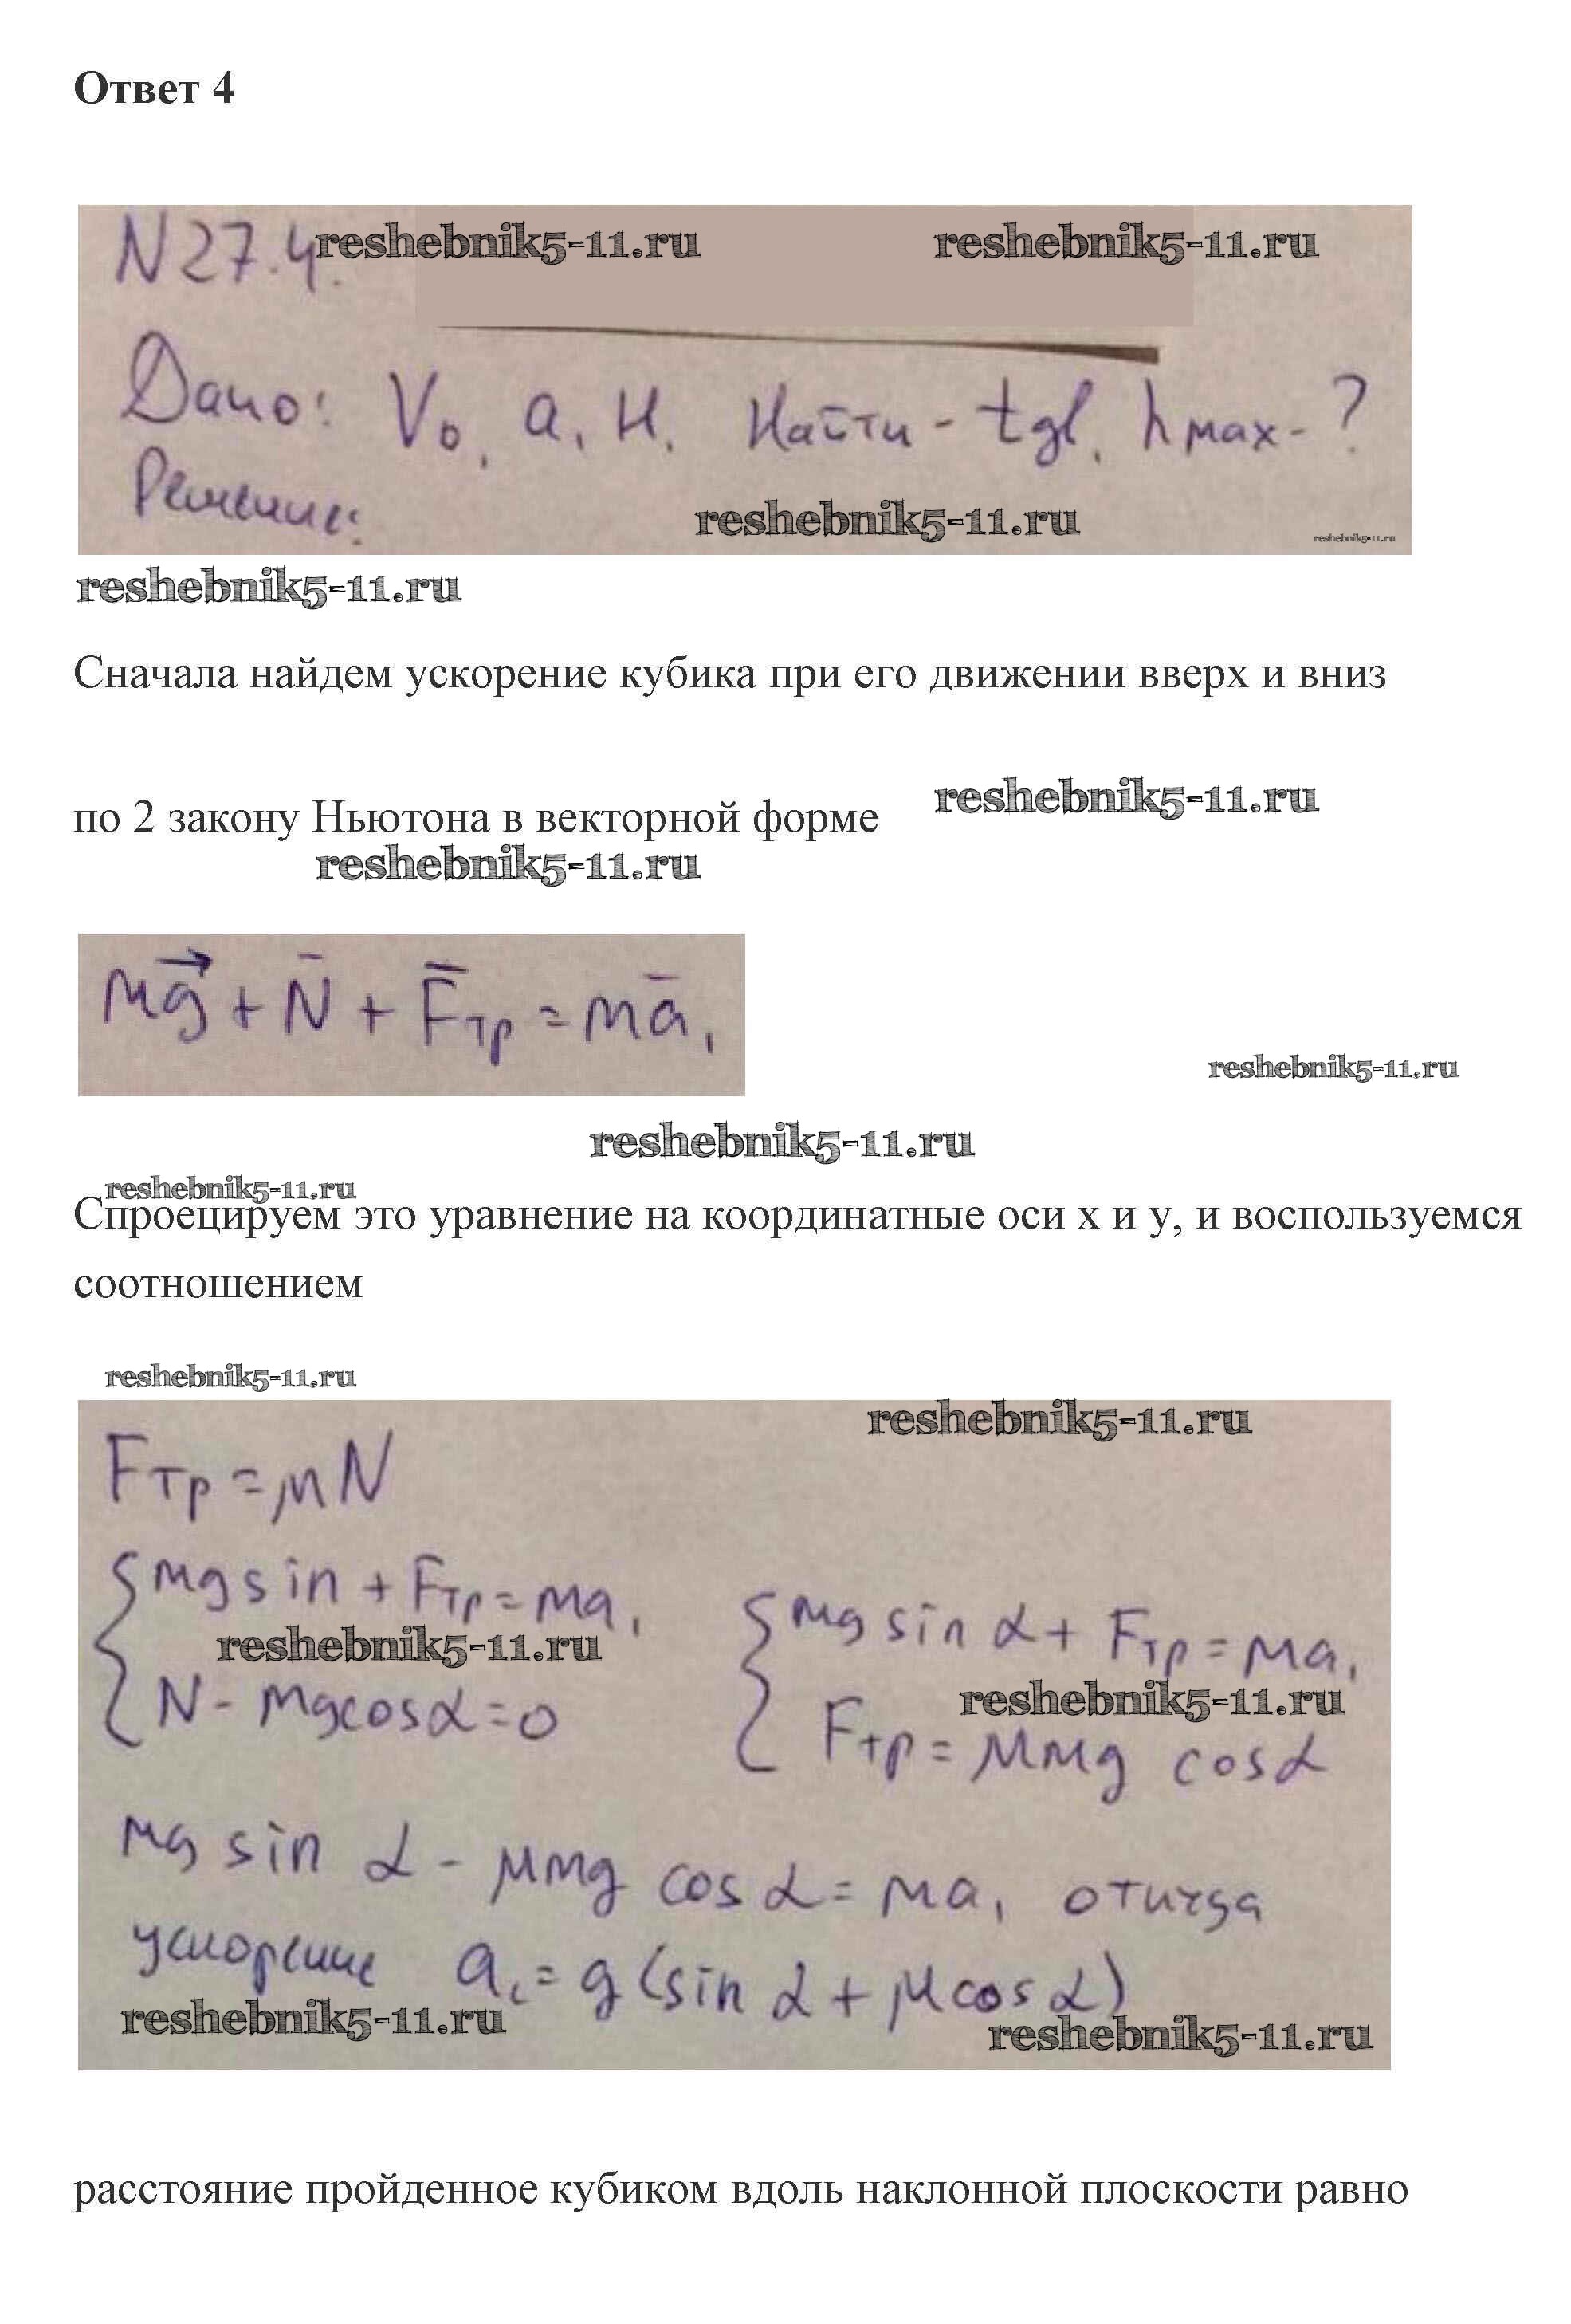 Ответ 4
N27.4.
reshebnik5-11.ru reshebnik5-11.ru
Дано: V₀, a, H. Найти - tgl, hmax-?
Решение:
reshebnik5-11.ru
reshebnik5-11.ru
reshebnik5-11.ru
Сначала найдем ускорение кубика при его движении вверх и вниз
reshebnik5-11.ru
по 2 закону Ньютона в векторной форме
reshebnik5-11.ru
mg⃗ + N̄ + F̄тр = mā₁
reshebnik5-11.ru
reshebnik5-11.ru
reshebnik5-11.ru
Спроецируем это уравнение на координатные оси x и y, и воспользуемся
соотношением
reshebnik5-11.ru
reshebnik5-11.ru
Fтр = μN
{ mg sin + Fтр = ma₁ { mg sin α + Fтр = ma₁
reshebnik5-11.ru reshebnik5-11.ru
N - mgcosα = 0 Fтр = μmg cosα
mg sin α - μmg cos α = ma₁ откуда
ускорение a₁ = g(sin α + μcosα)
reshebnik5-11.ru reshebnik5-11.ru
расстояние пройденное кубиком вдоль наклонной плоскости равно